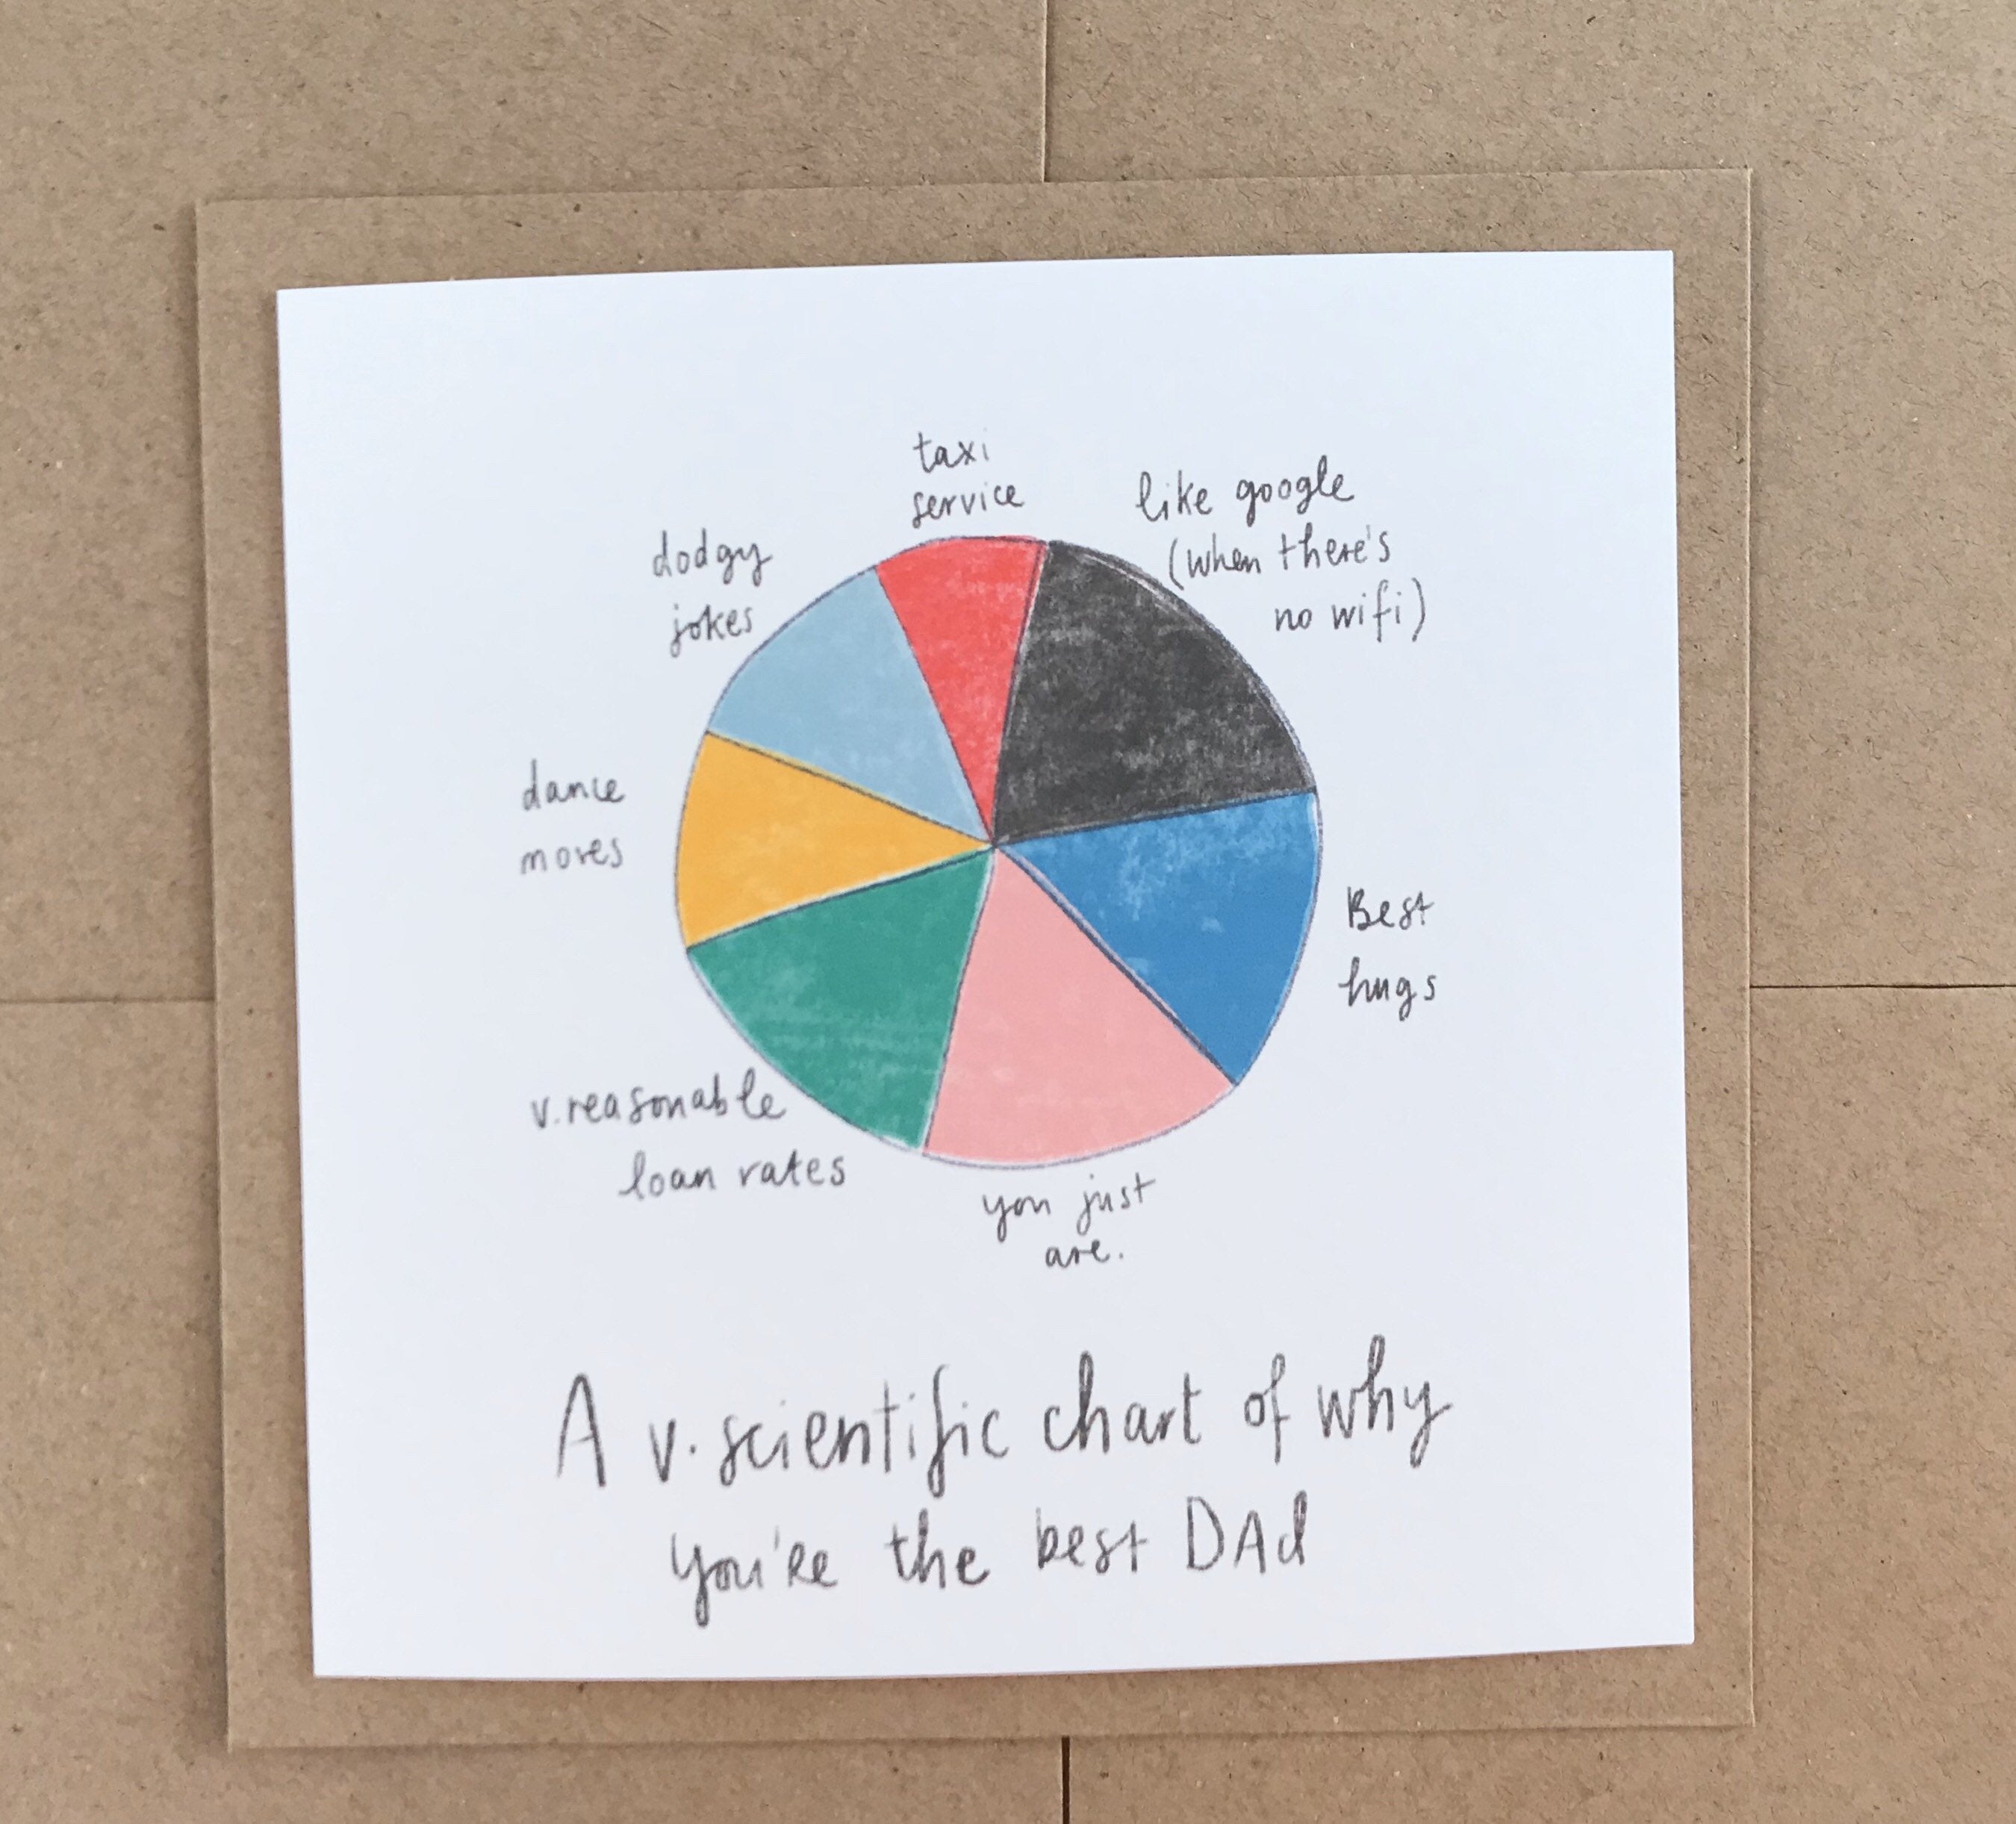 taxi
service
like google
(when there's
no wifi)
dodgy
jokes
dance
moves
Best
hugs
v.reasonable
loan rates
you just
are.
A v. scientific chart of why
you're the best DAd